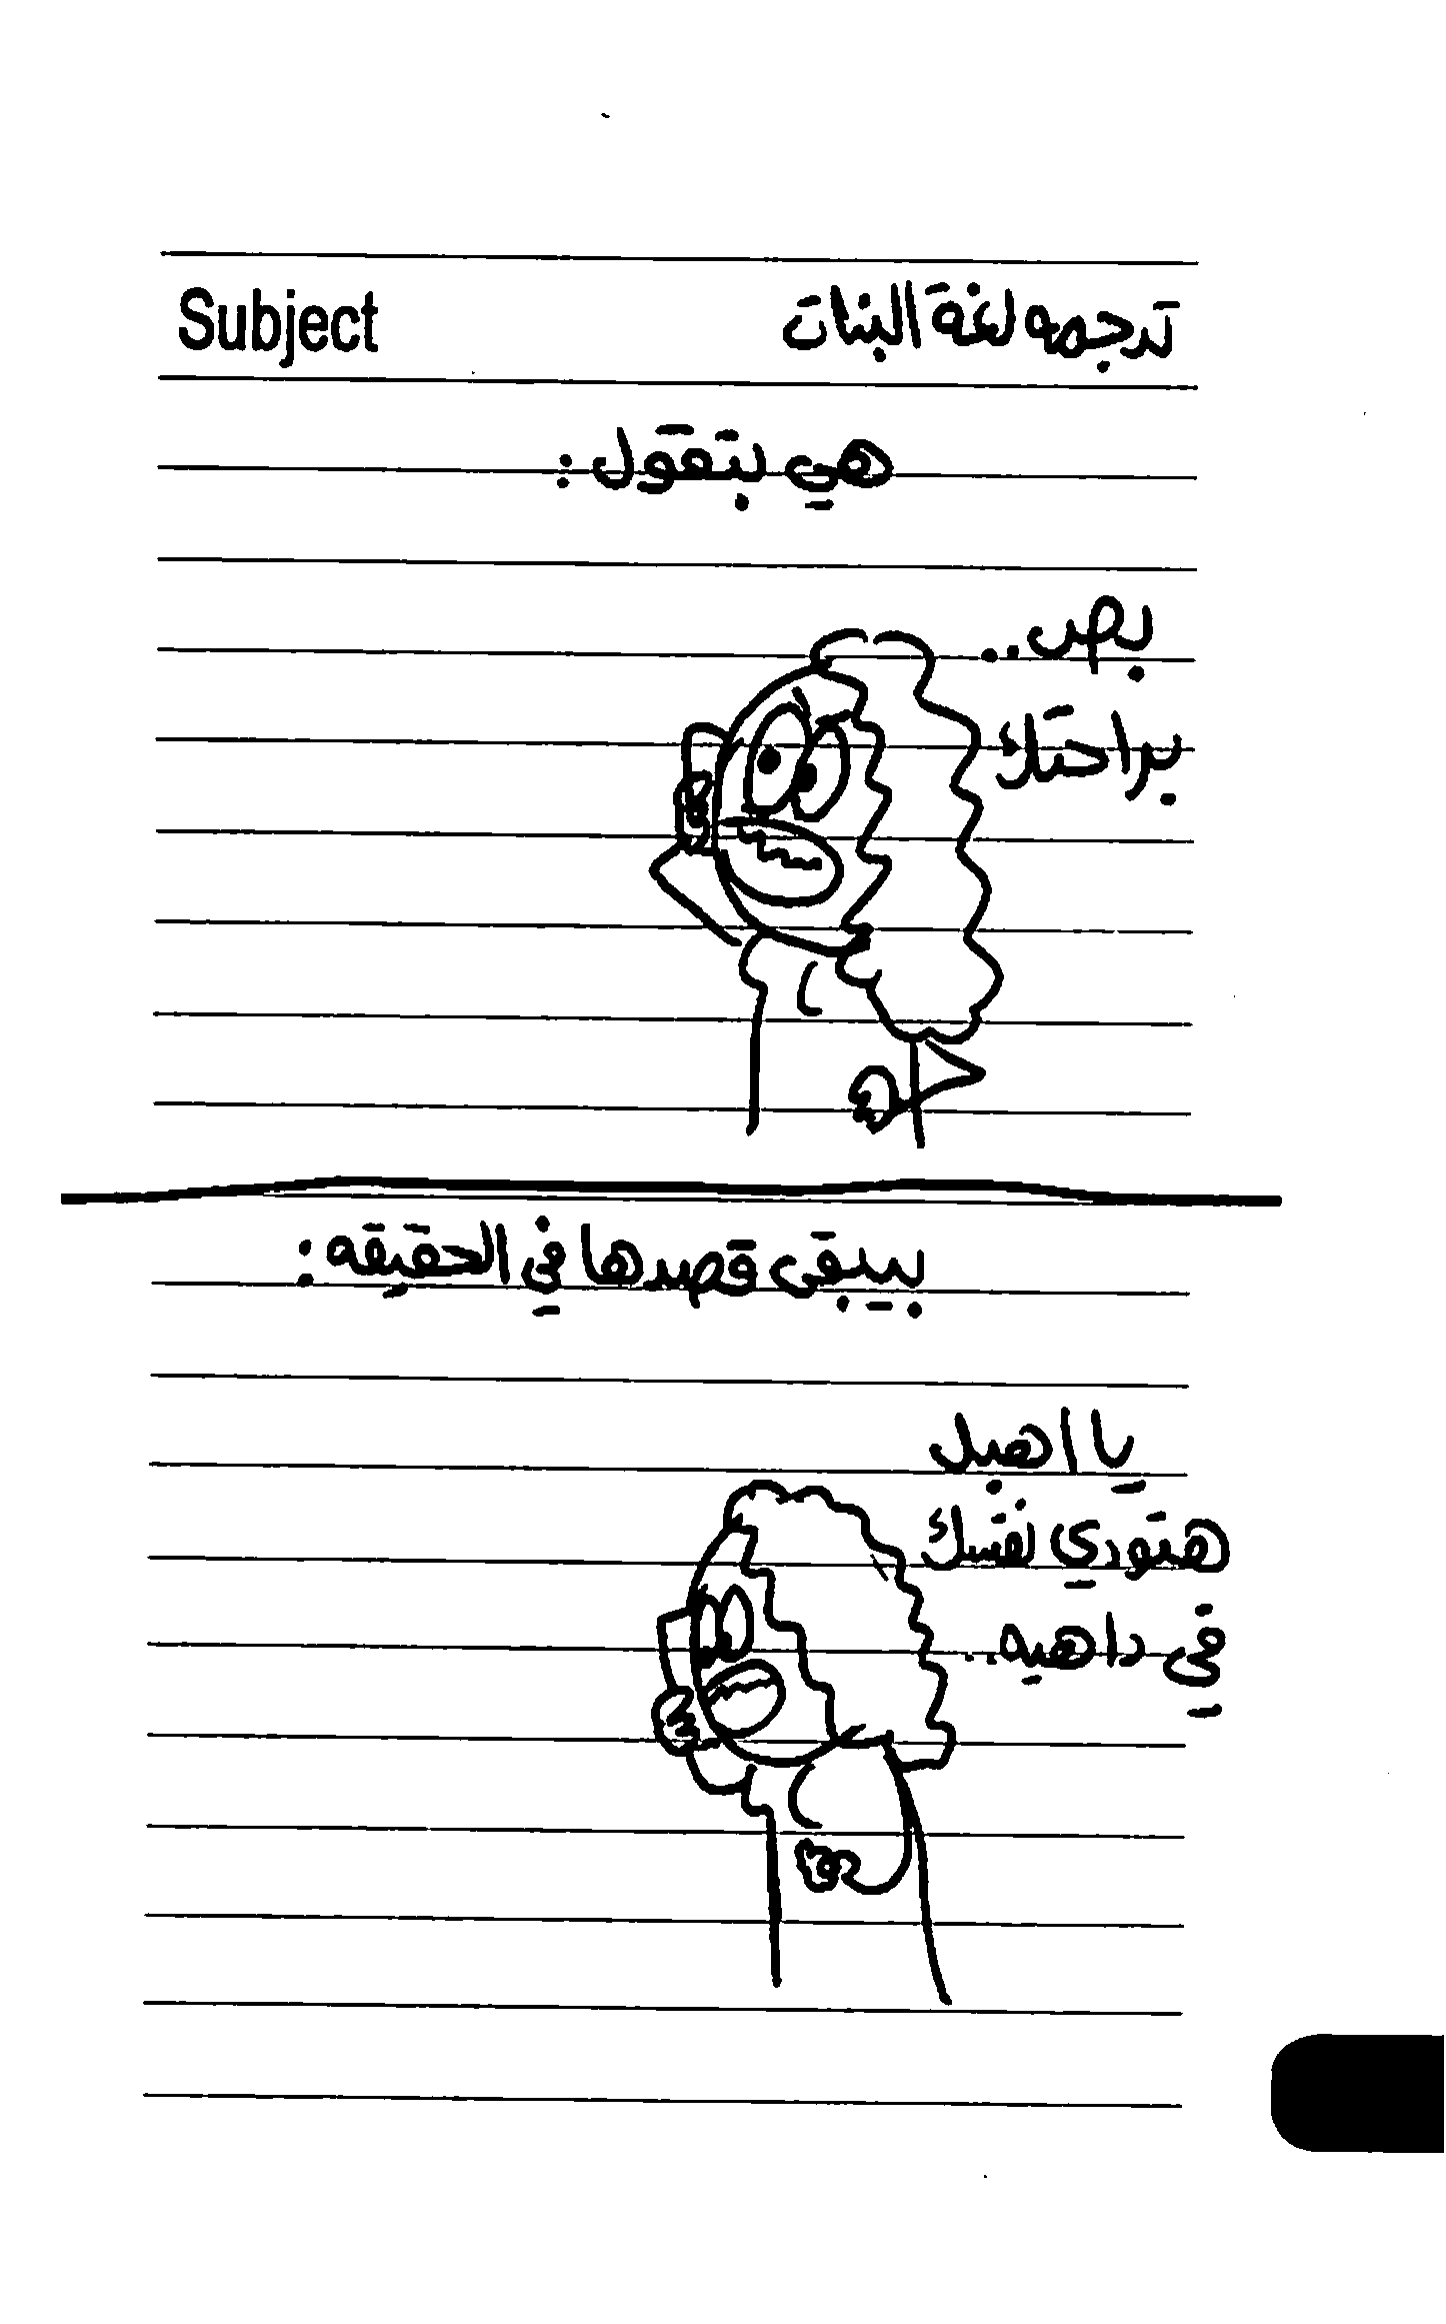 Subject ترجمه لغة البنات
هي بتقول :
بص ..
براحتك
بيبقى قصدها في الحقيقه :
يا اهبل
هتودي نفسك
في داهيه ..